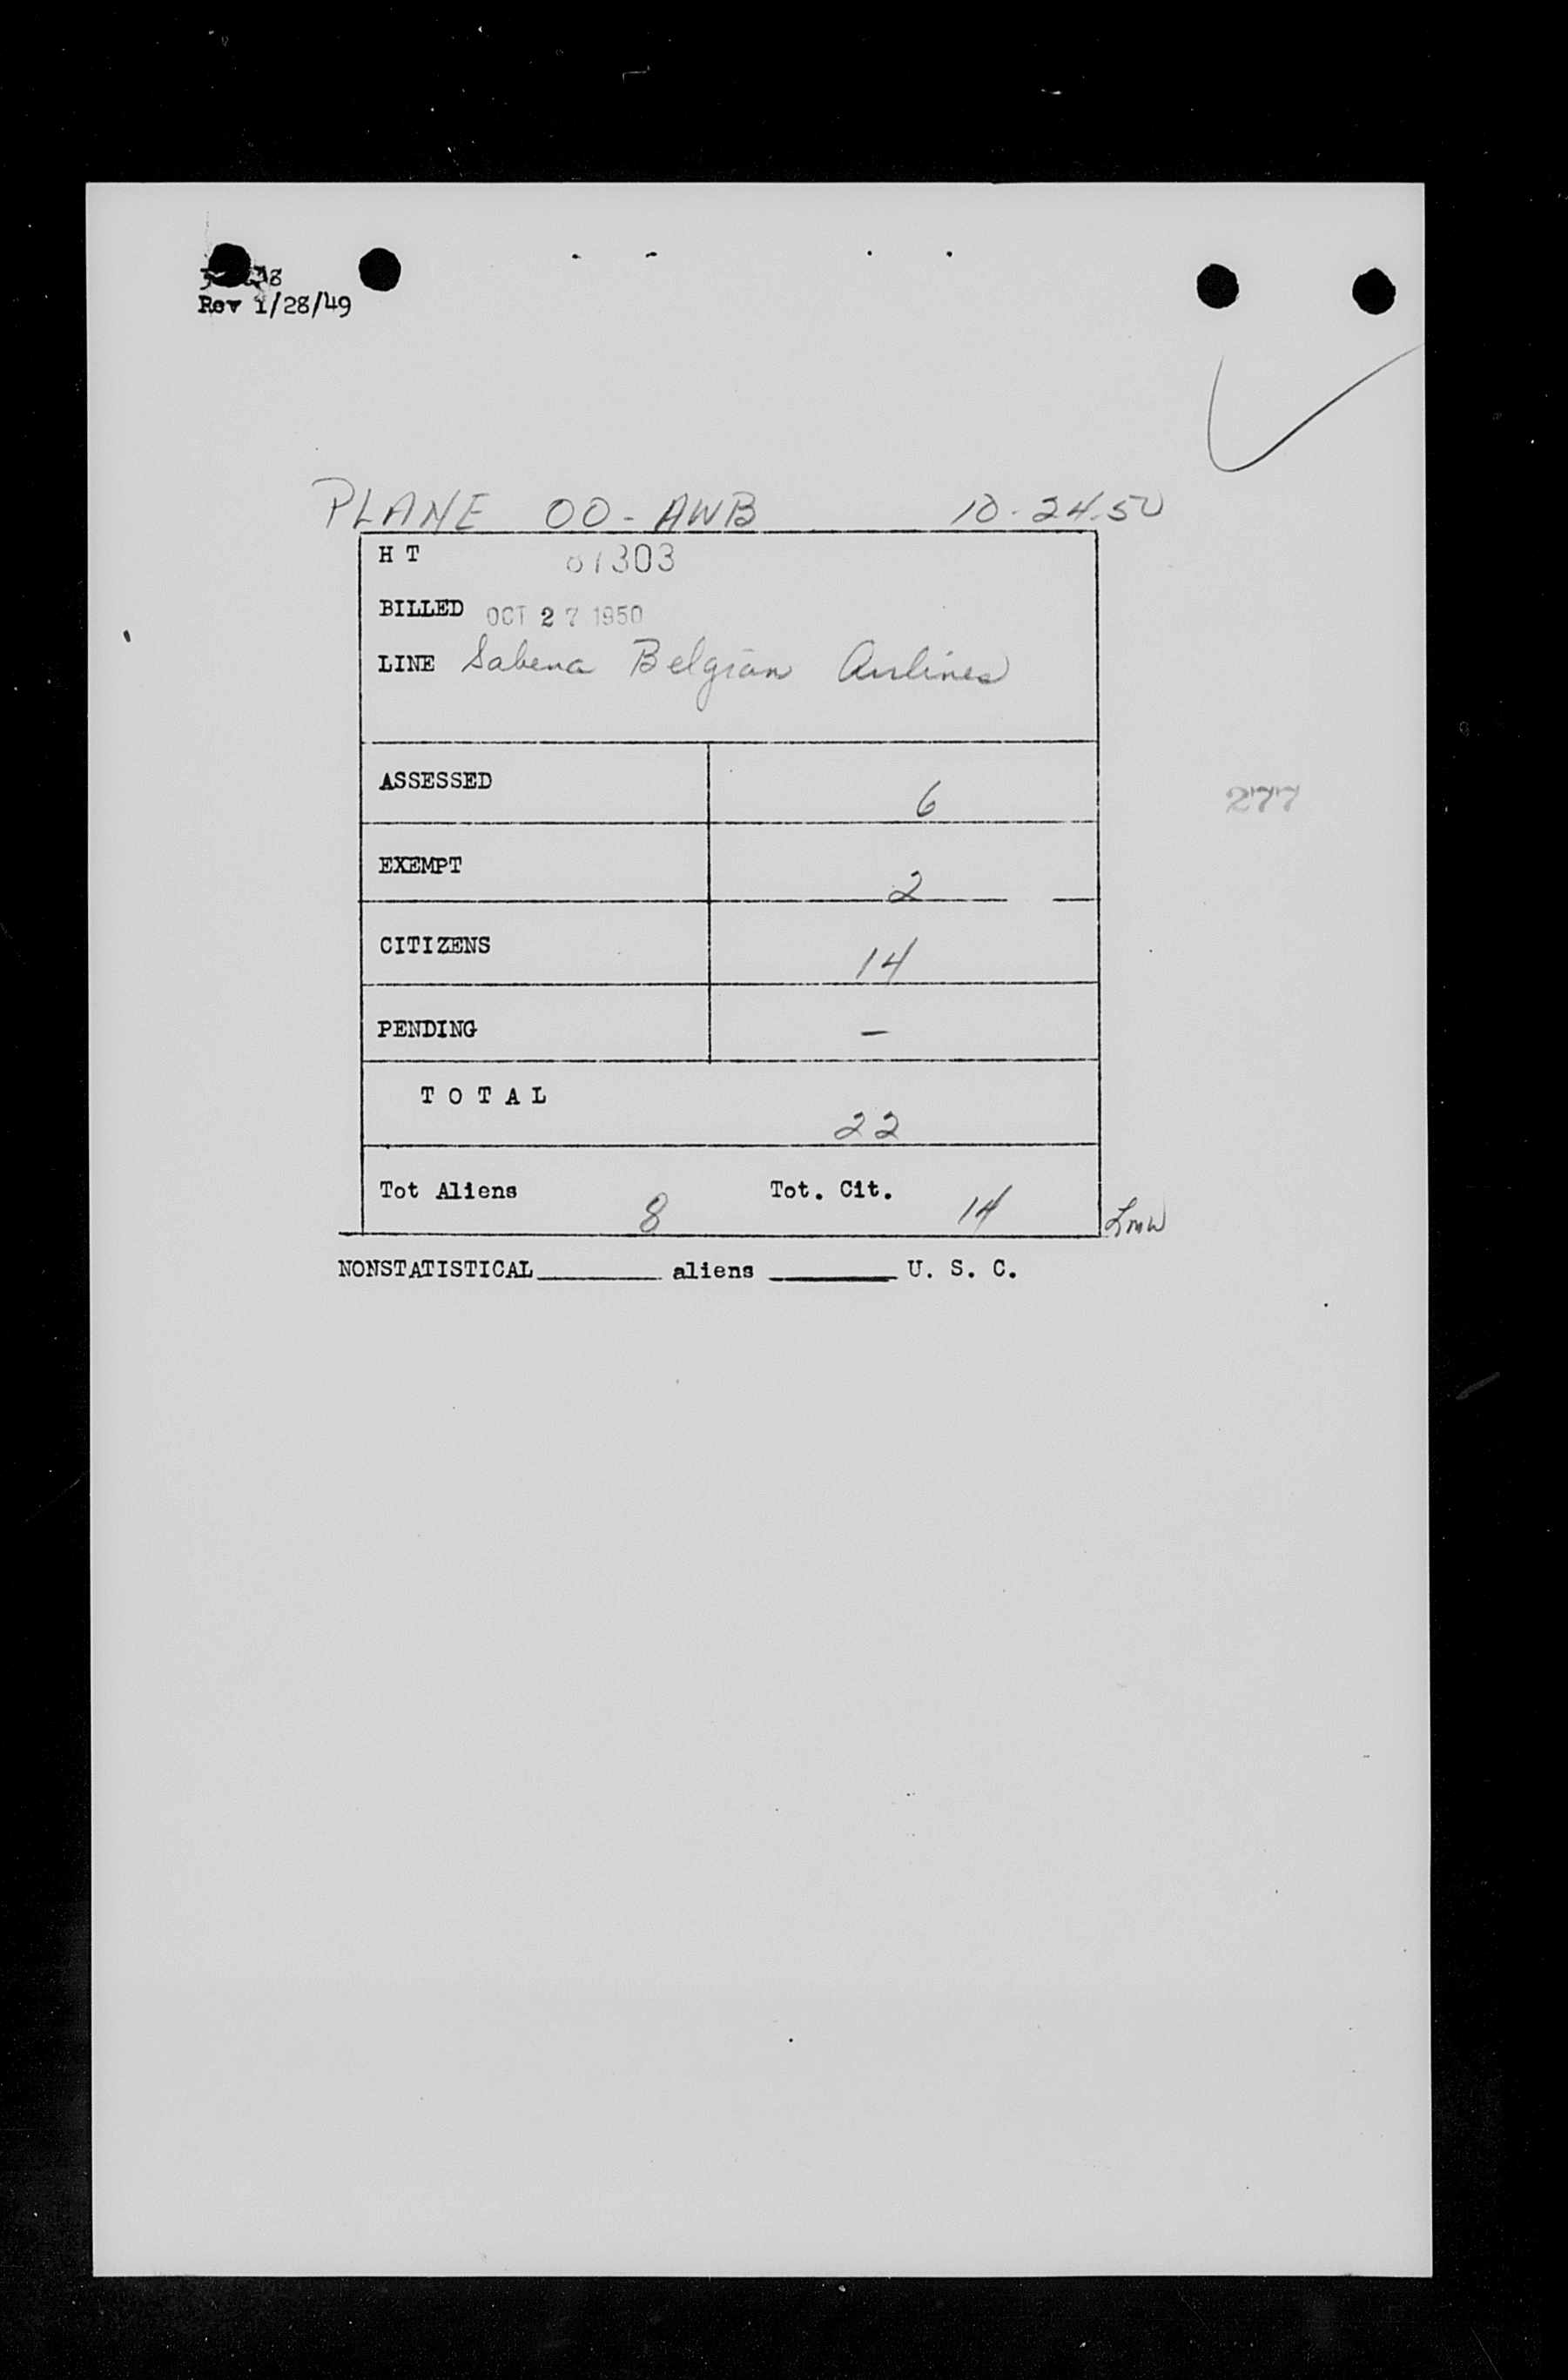 Rev 1/28/49
PLANE OO-AWB 10-24-50
H T 303
BILLED OCT 27 1950
LINE Sabena Belgian Airlines
ASSESSED 6
277
EXEMPT 2
CITIZENS 14
PENDING –
TOTAL 22
Tot Aliens 8 Tot. Cit. 14
NONSTATISTICAL________ aliens ________ U. S. C.